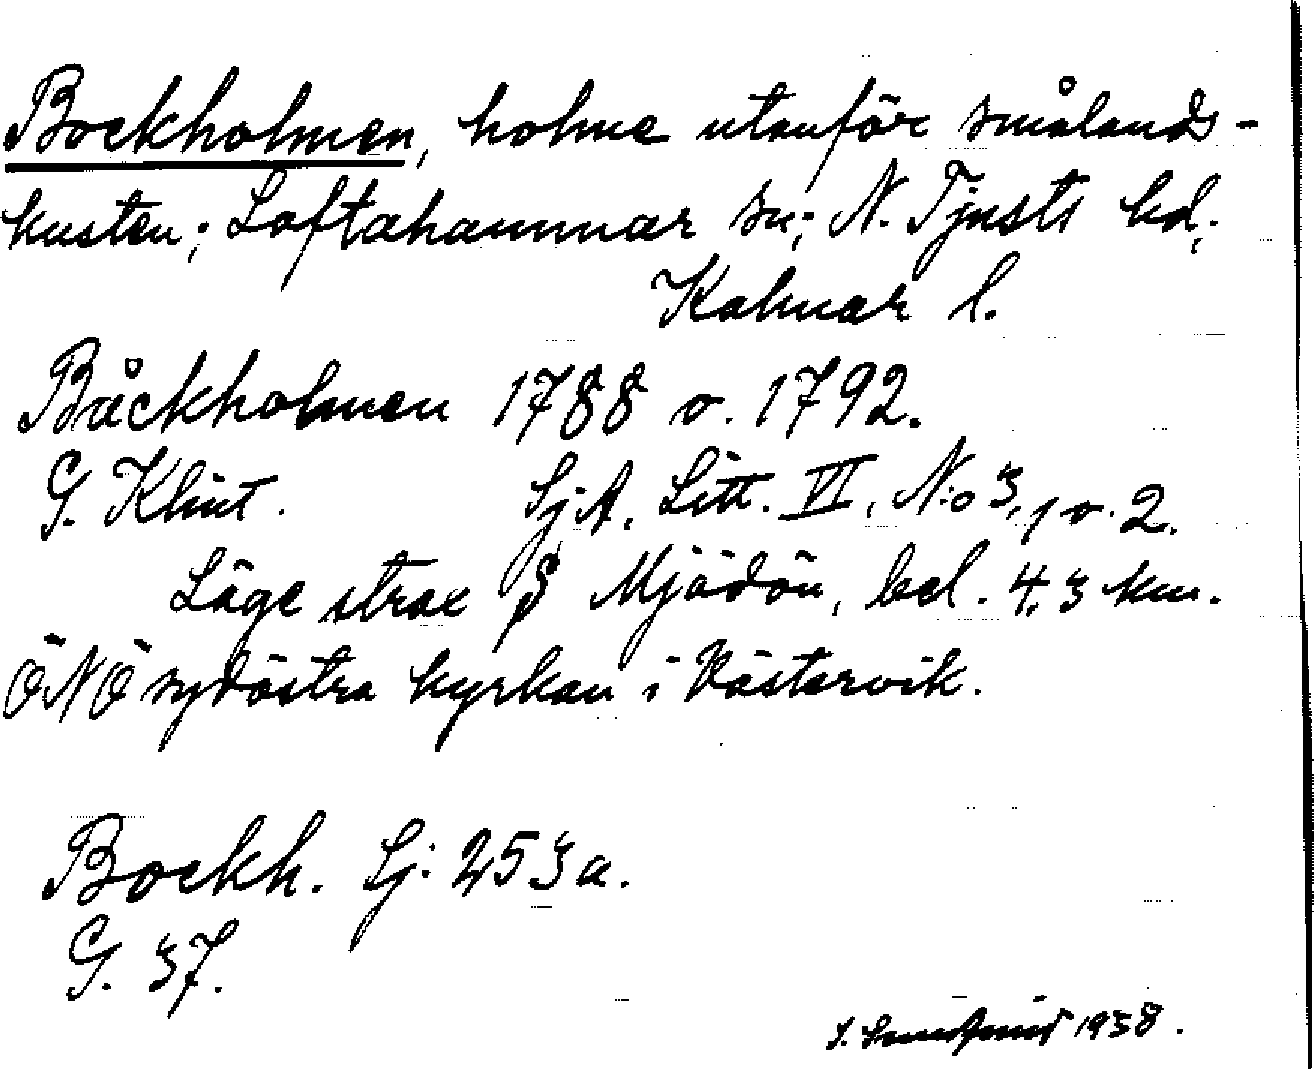 Bockholmen, holme utanför smålands-
kusten; Loftahammar sn; N. Tjusts hd;
Kalmar l.
Båckholmen 1788 o. 1792.
G. Klint. Sj.A. Litt. VI, N:o 3, 1 o. 2.
Läge strax S Mjödön, bel. 4,3 km.
ÖNÖ sydöstra kyrkan i Västervik.
Bockh. Sj: 253a.
G. 37.
S. 1938.